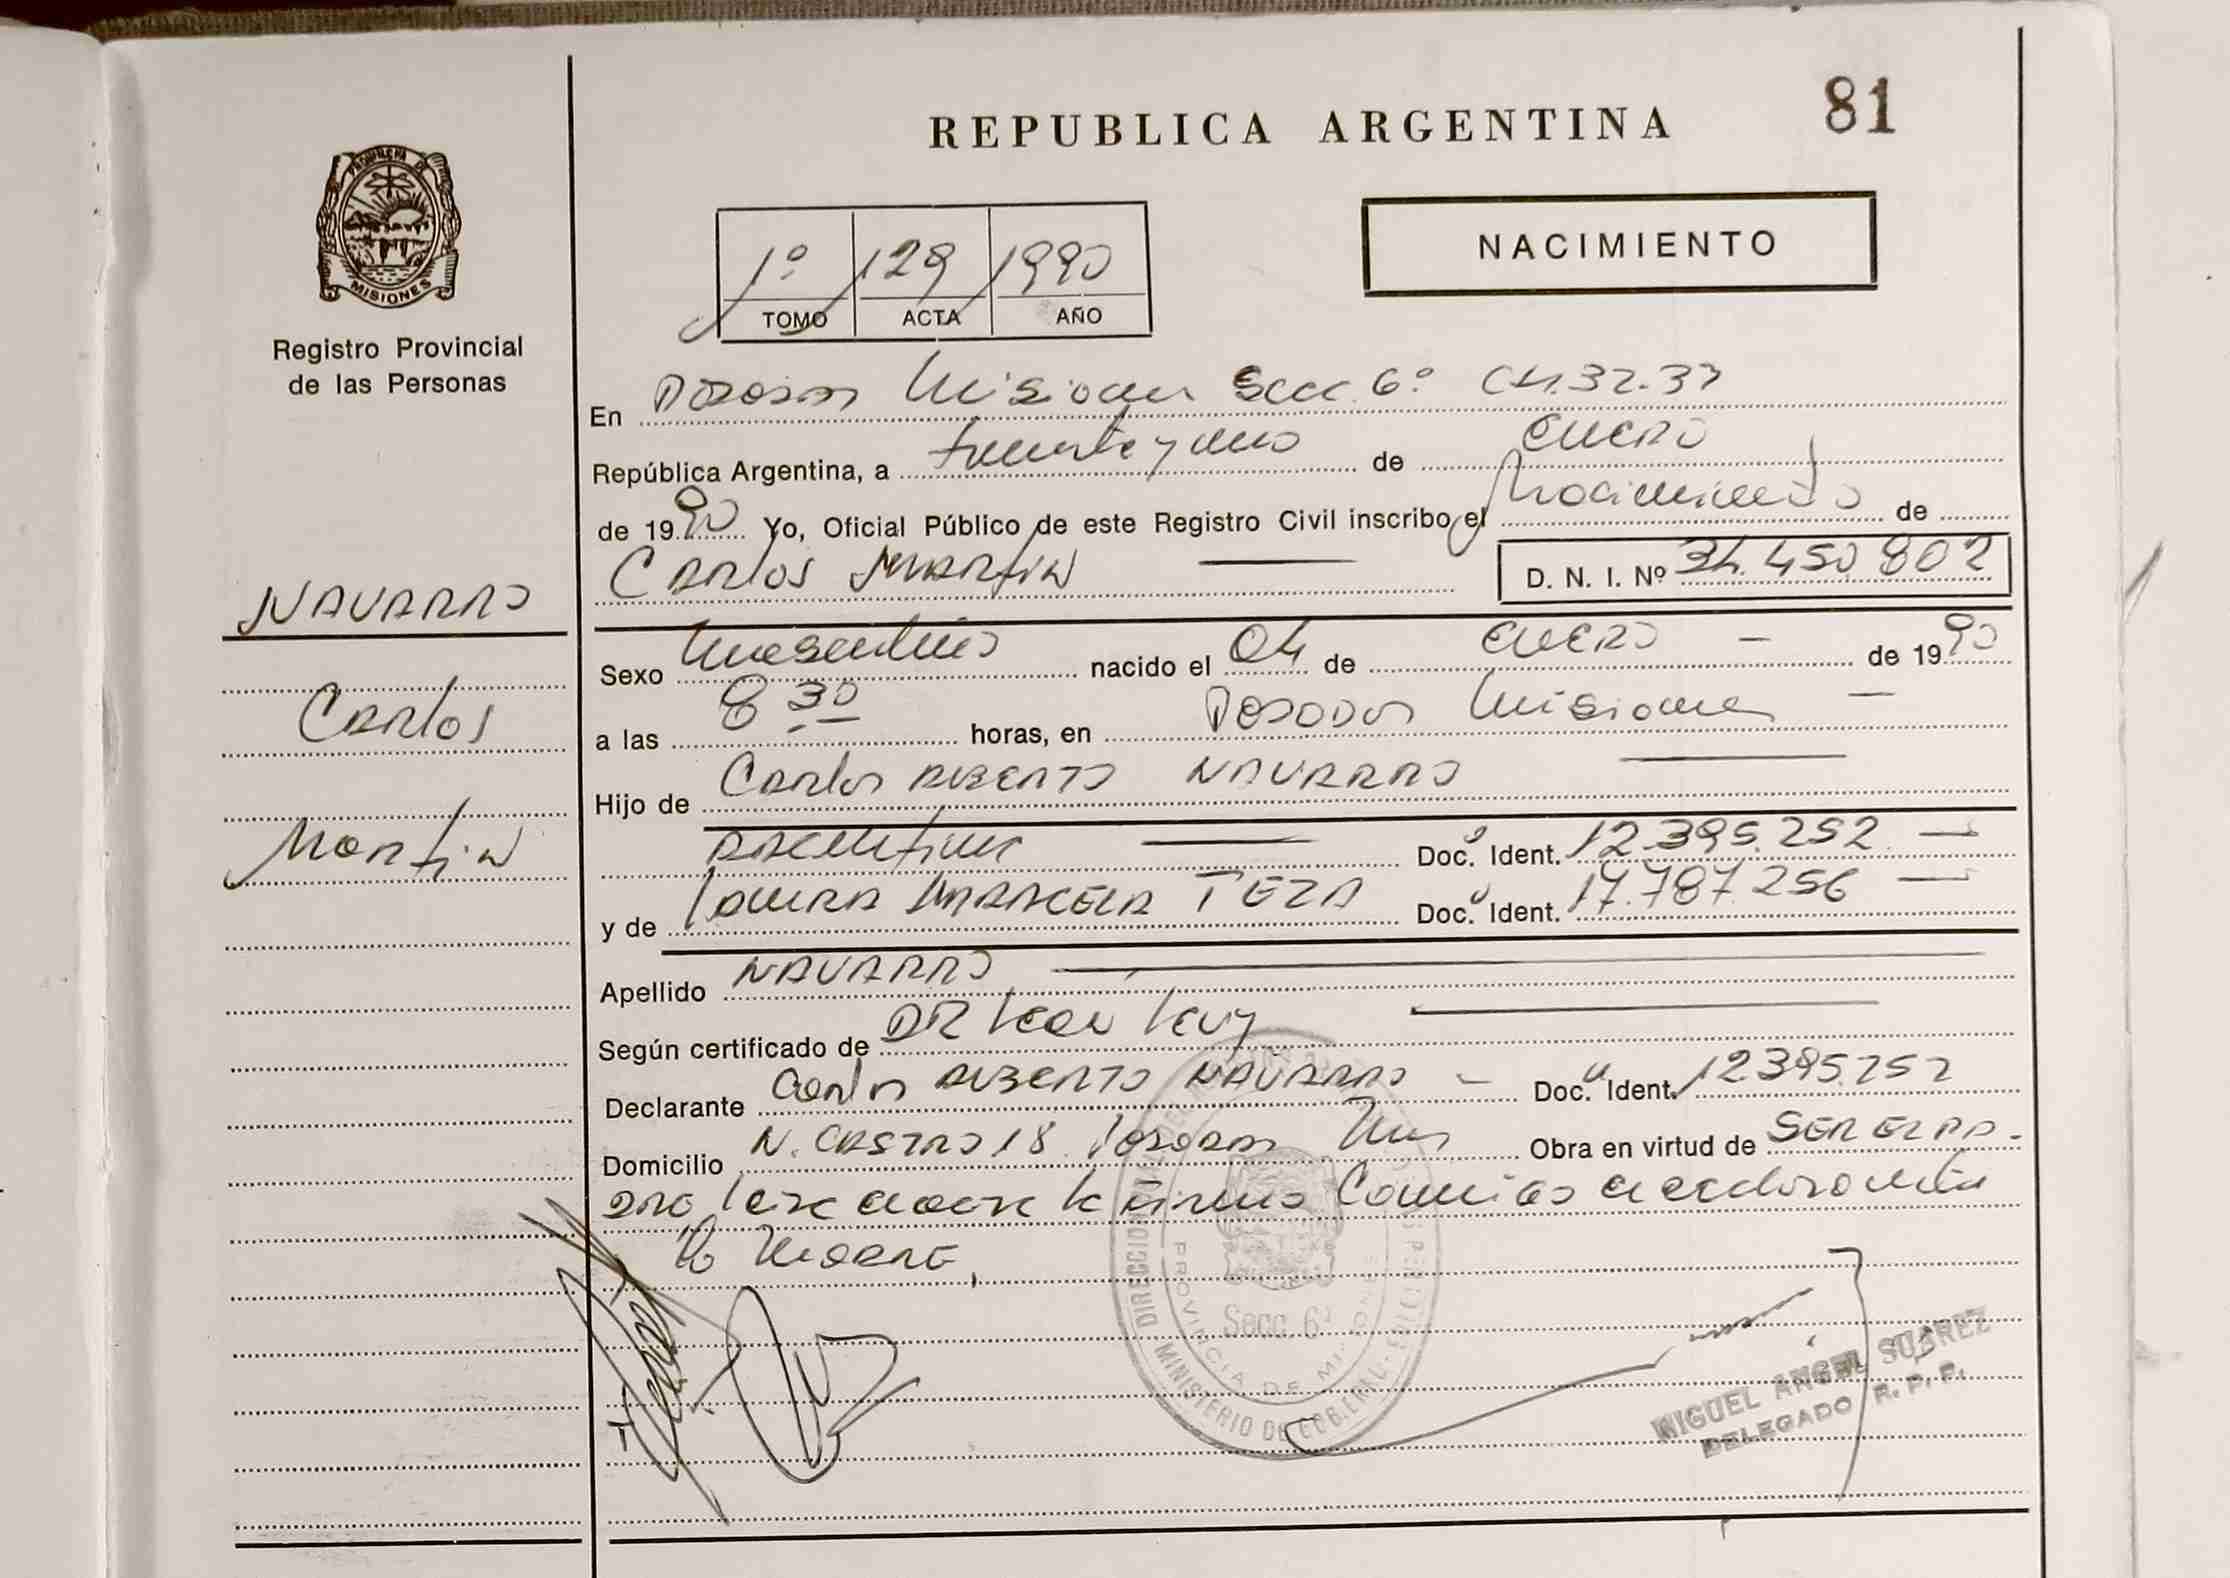 81
REPUBLICA ARGENTINA
PROVINCIA DE
MISIONES
Registro Provincial
de las Personas
NACIMIENTO
1º 129 1990
TOMO ACTA AÑO
En Posadas Misiones Secc. 6º CH. 32-33
República Argentina, a treinta y uno de enero
de 1990 Yo, Oficial Público de este Registro Civil inscribo el Nacimiento de
Carlos Martin D. N. I. Nº 34.450.802
NAVARRO
Carlos
Martin
Sexo Masculino nacido el 04 de enero de 1990
a las 8 30 horas, en Posadas Misiones
Hijo de Carlos Alberto NAVARRO
argentino Doc. Ident. 12.395.252
y de Laura Marcela TEZA Doc. Ident. 17.787.256
Apellido NAVARRO
Según certificado de DR Leon Levy
Declarante Carlos Alberto NAVARRO Doc. Ident. 12395.252
Domicilio N. CASTRO 18 Posadas Mnes Obra en virtud de SER EL PA-
DRE
la madre,
Secc. 6ª
DIRECCION
PROVINCIA DE MISIONES
MINISTERIO DE GOB.
MIGUEL ANGEL SUAREZ
DELEGADO R. P. P.